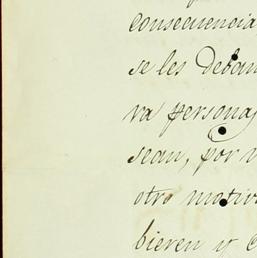 consecuencia
se les deban
va persona
sean, por
otro motivo
bieren y